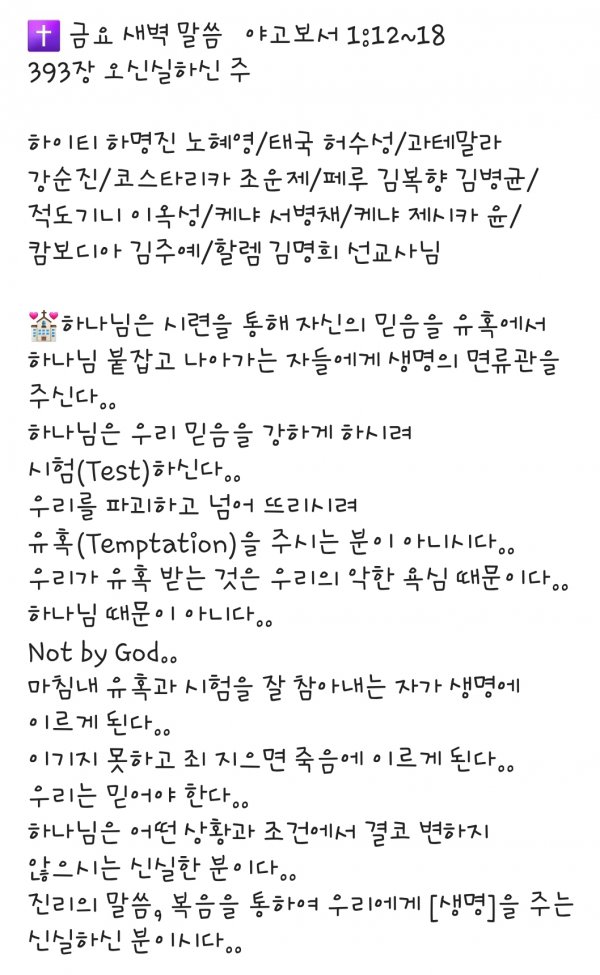 ✝️ 금요 새벽 말씀 야고보서 1:12~18
393장 오신실하신 주
하이티 하명진 노혜영/태국 허수성/과테말라
강순진/코스타리카 조운제/페루 김복향 김병균/
적도기니 이옥성/케냐 서병채/케냐 제시카 윤/
캄보디아 김주예/할렘 김명희 선교사님
💒하나님은 시련을 통해 자신의 믿음을 유혹에서
하나님 붙잡고 나아가는 자들에게 생명의 면류관을
주신다..
하나님은 우리 믿음을 강하게 하시려
시험(Test)하신다..
우리를 파괴하고 넘어 뜨리시려
유혹(Temptation)을 주시는 분이 아니시다..
우리가 유혹 받는 것은 우리의 악한 욕심 때문이다..
하나님 때문이 아니다..
Not by God..
마침내 유혹과 시험을 잘 참아내는 자가 생명에
이르게 된다..
이기지 못하고 죄 지으면 죽음에 이르게 된다..
우리는 믿어야 한다..
하나님은 어떤 상황과 조건에서 결코 변하지
않으시는 신실한 분이다..
진리의 말씀, 복음을 통하여 우리에게 [생명]을 주는
신실하신 분이시다..